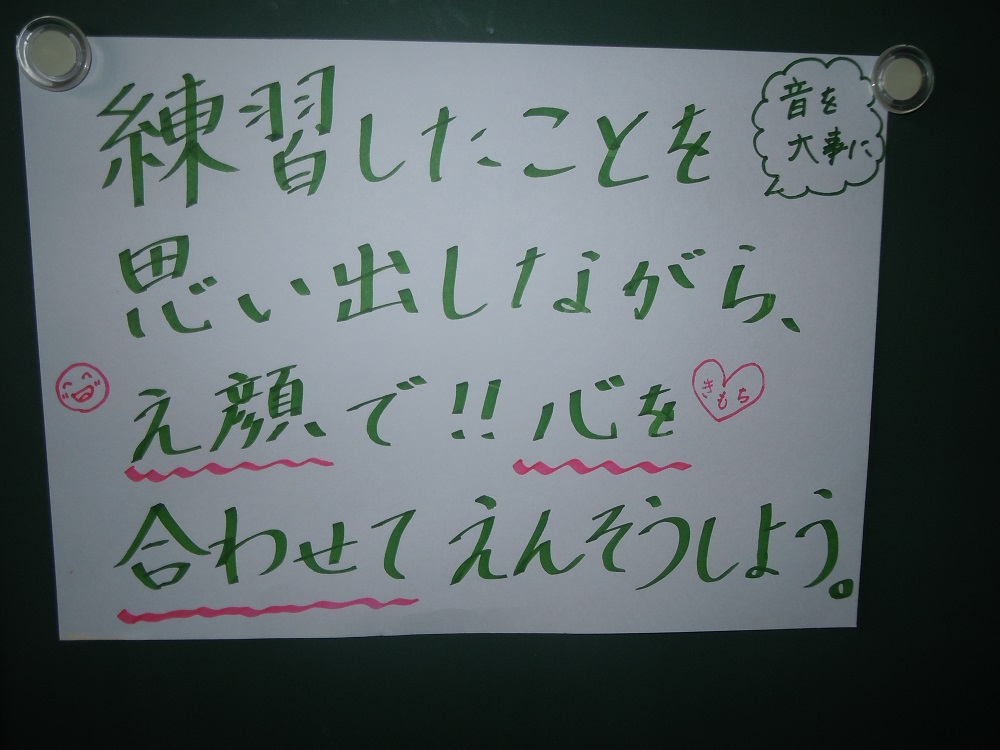 練習したことを
音を
大事に
思い出しながら、
え顔で!!心を
きもち
合わせてえんそうしよう。